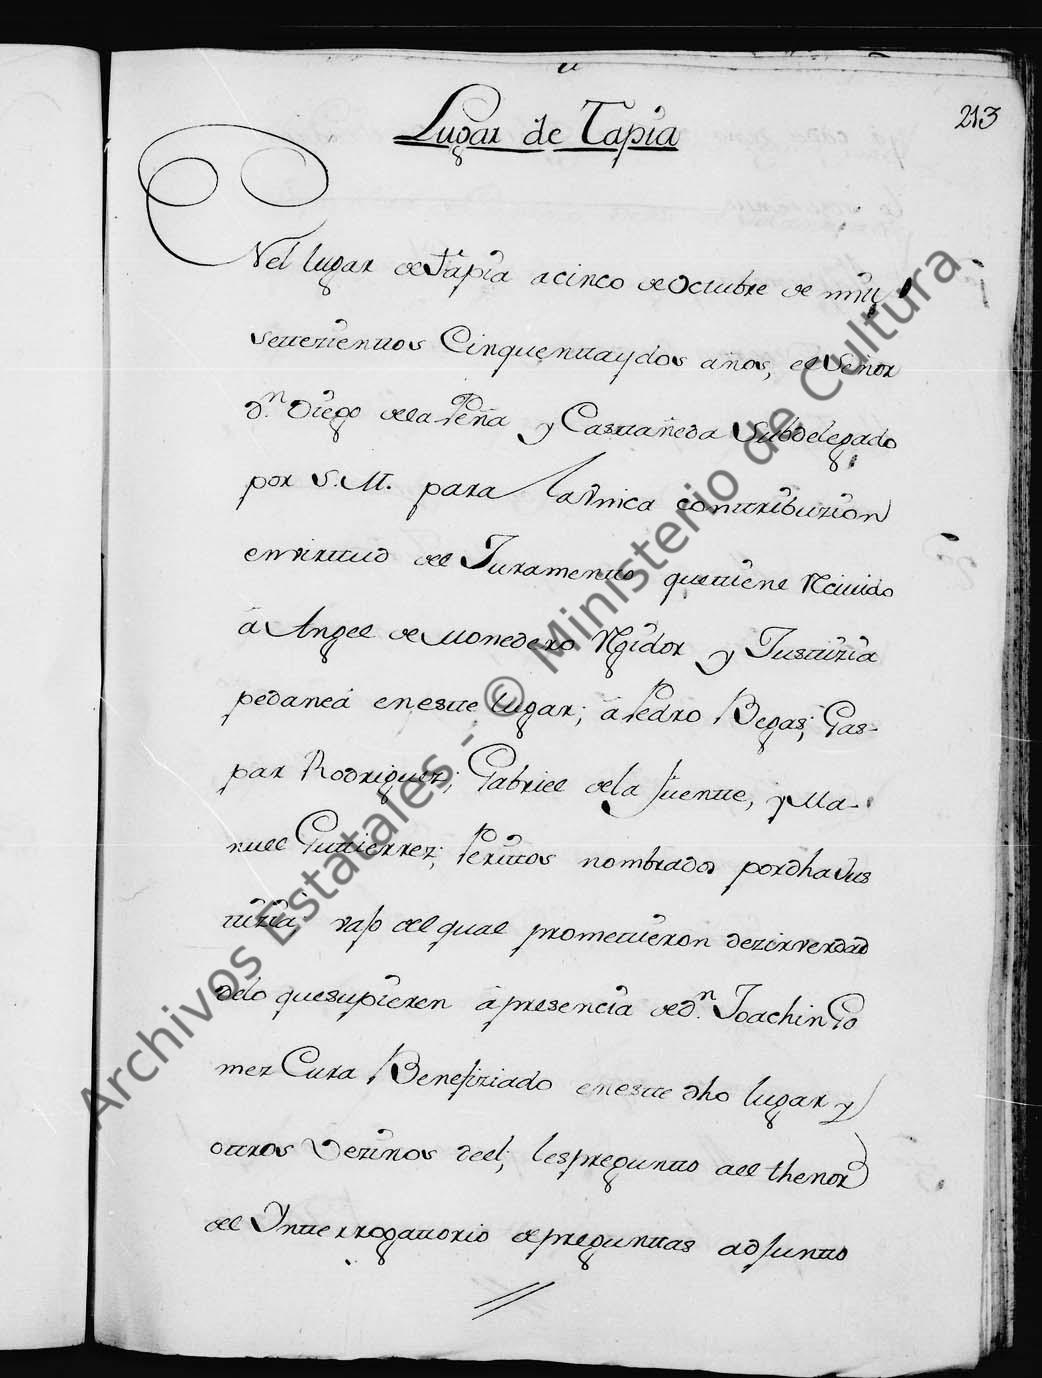 Lugar de Tapia
213
ENel lugar de Tapia a cinco de Octubre de mill
settezienttos Cinquentta y dos años, el Señor
Dn. Diego de la Peña y Casttañeda Subdelegado
por S.M. para la Vnica conttribuzion
en virttud del Juramentto que ttiene Rcivido
â Angel de Monedero Rgidor y Justtizia
pedaneá en estte lugar; â Pedro Begas; Gas-
par Rodriguez; Gabriel de la fuentte, y Ma-
nuel Guttierrez; Perittos nombrados por dha Jus
ttizia, vajo del qual promettieron dezir verdad
de lo que supieren â presencia de Dn. Joachin Go
mez Cura Benefiziado en estte dho lugar y
ottros Vezinos de el; les preguntto a el thenor
del Ynterrogattorio de preguntas adjuntto
Archivos Estatales - © Ministerio de Cultura